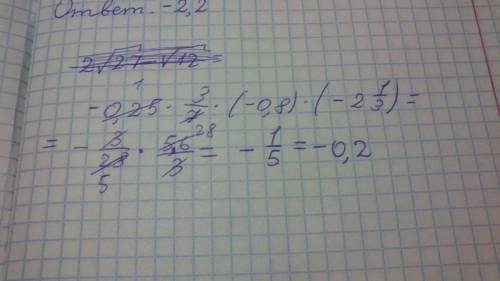 Ответ: -2,2
2√27 - √12 =
-0,25 · 3/7 · (-0,8) · (-2 1/3) =
= - 3/28 · 5,6/3 = - 1/5 = -0,2